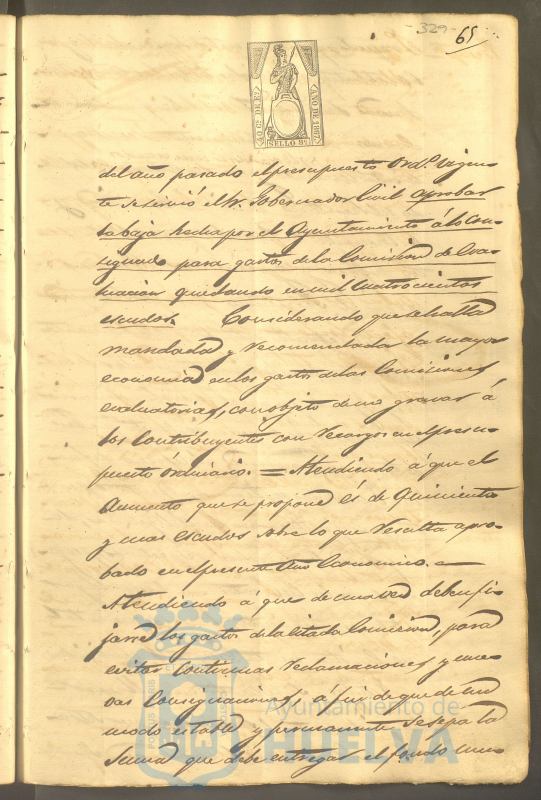 - 329 -
65
40 Cs. DE Eo.
AÑO DE 1867
SELLO 9º
del año pasado el presupuesto Ordº. vigen-
te se sirvió el Sr. Gobernador Civil aprobar
la baja hecha por el Ayuntamiento á lo con-
signado para gastos de la Comision de Eva-
luacion quedando en mil cuatrocientos
escudos. Considerando que se halla
mandada y recomendada la mayor
economia en los gastos de las Comisiones
evaluatorias, con objeto de no gravar á
los Contribuyentes con recargos en el presu-
puesto Ordinario. = Atendiendo á que el
Aumento que se propone és de Quinientos
y mas escudos sobre lo que resulta apro-
bado en el presente Año Economico. =
Atendiendo á que de una vez deben fi-
jarse los gastos de la citada Comision, para
evitar continuas reclamaciones y nue-
vas Consignaciones, á fin de que de un
modo estable y permanente se sepa la
Suma que debe entregar el fondo muni
Ayuntamiento de
HUELVA